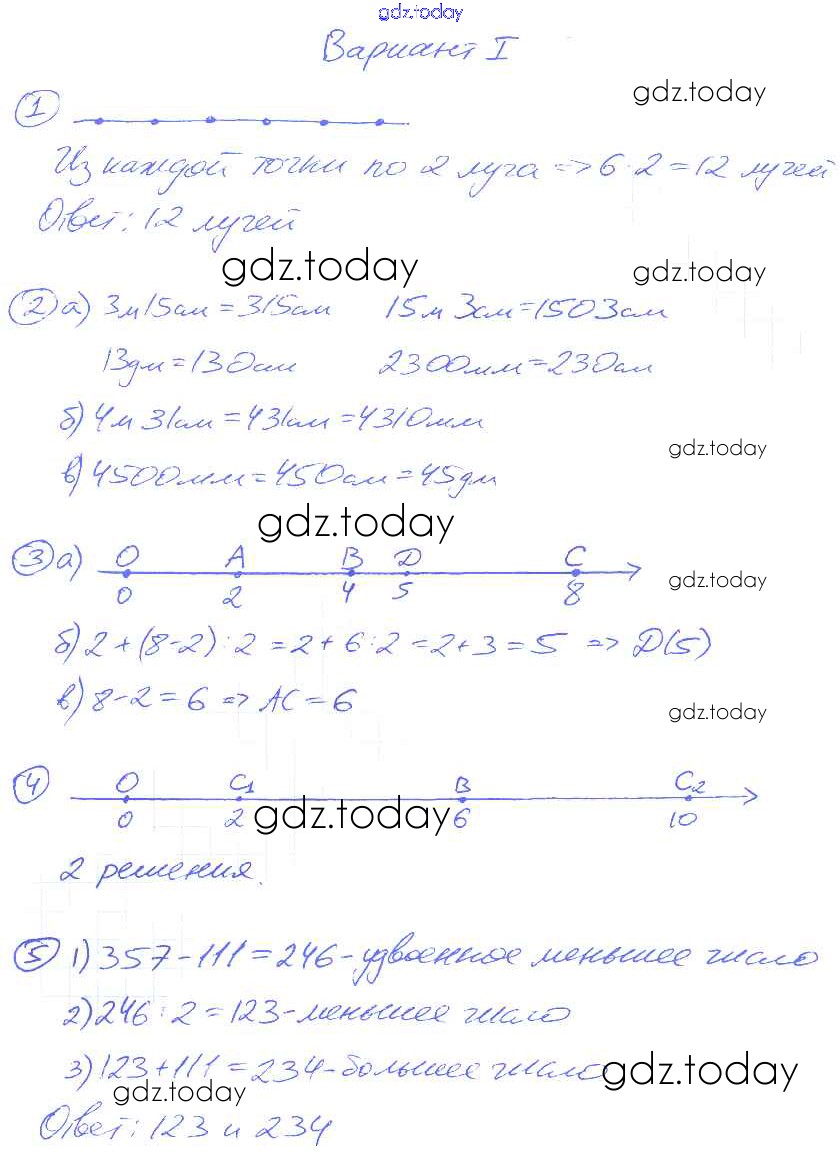 gdz.today
Вариант I
gdz.today
1
Из каждой точки по 2 луча => 6·2=12 лучей
Ответ: 12 лучей
gdz.today gdz.today
2 а) 3м15см=315см 15м 3см=1503см
13дм=130см 2300мм=230см
б) 4м 31см=431см=4310мм
gdz.today
в) 4500мм=450см=45дм
gdz.today
3 а) O A B D C
gdz.today
0 2 4 5 8
б) 2+(8-2):2=2+6:2=2+3=5 => D(5)
в) 8-2=6 => AC=6
gdz.today
4 O C₁ B C₂
0 2 gdz.today 6 10
2 решения.
5 1) 357-111=246-удвоенное меньшее число
2) 246:2=123-меньшее число
3) 123+111=234-большее число gdz.today
gdz.today
Ответ: 123 и 234